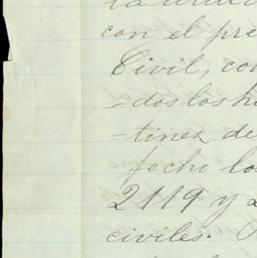 con el pre
Civil, con
-dos los h
-tinez de
fecho lo
2119 y 2
civiles.